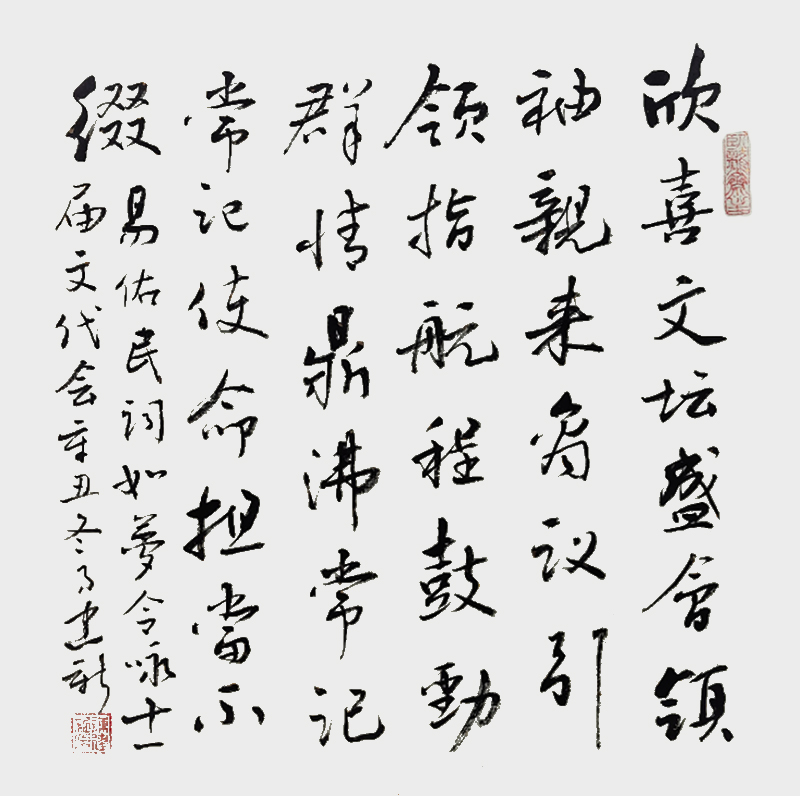 欣喜文坛盛會領
袖親来商议引
领指航程鼓勁
群情鼎沸常记
常记使命担当不
缀
易佑民词如夢令咏十一
届文代会辛丑冬月新